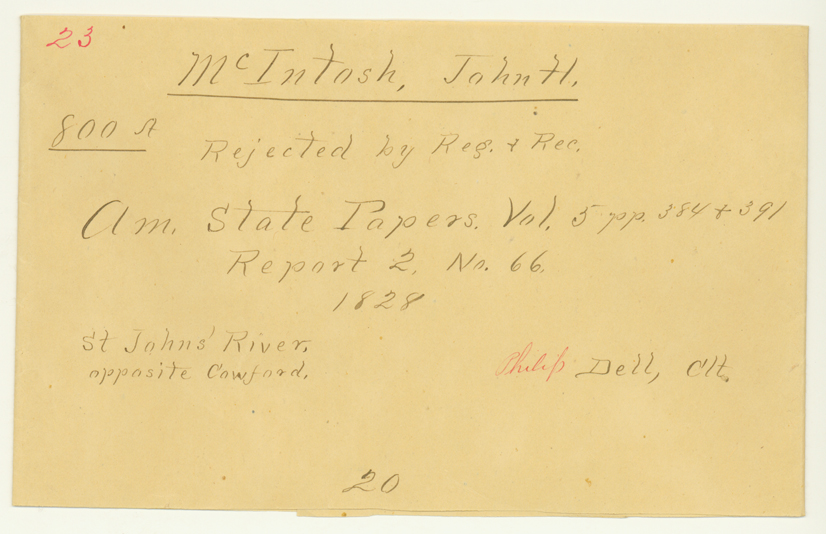 23
McIntosh, John H.
800 A
Rejected by Reg. & Rec.
Am. State Papers. Vol. 5 pp. 384 & 391
Report 2. No. 66.
1828
St Johns' River,
opposite Cowford.
Philip Dell, Clt.
20